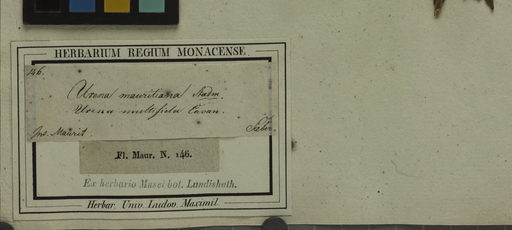 HERBARIUM REGIUM MONACENSE.
146.
Urena mauritiana Nadm.
Urena multifida Cavan.
Ins. Maurit
Sieber.
Fl. Maur. N. 146.
Ex herbario Musei bot. Landishuth.
Herbar. Univ. Ludov. Maximil.